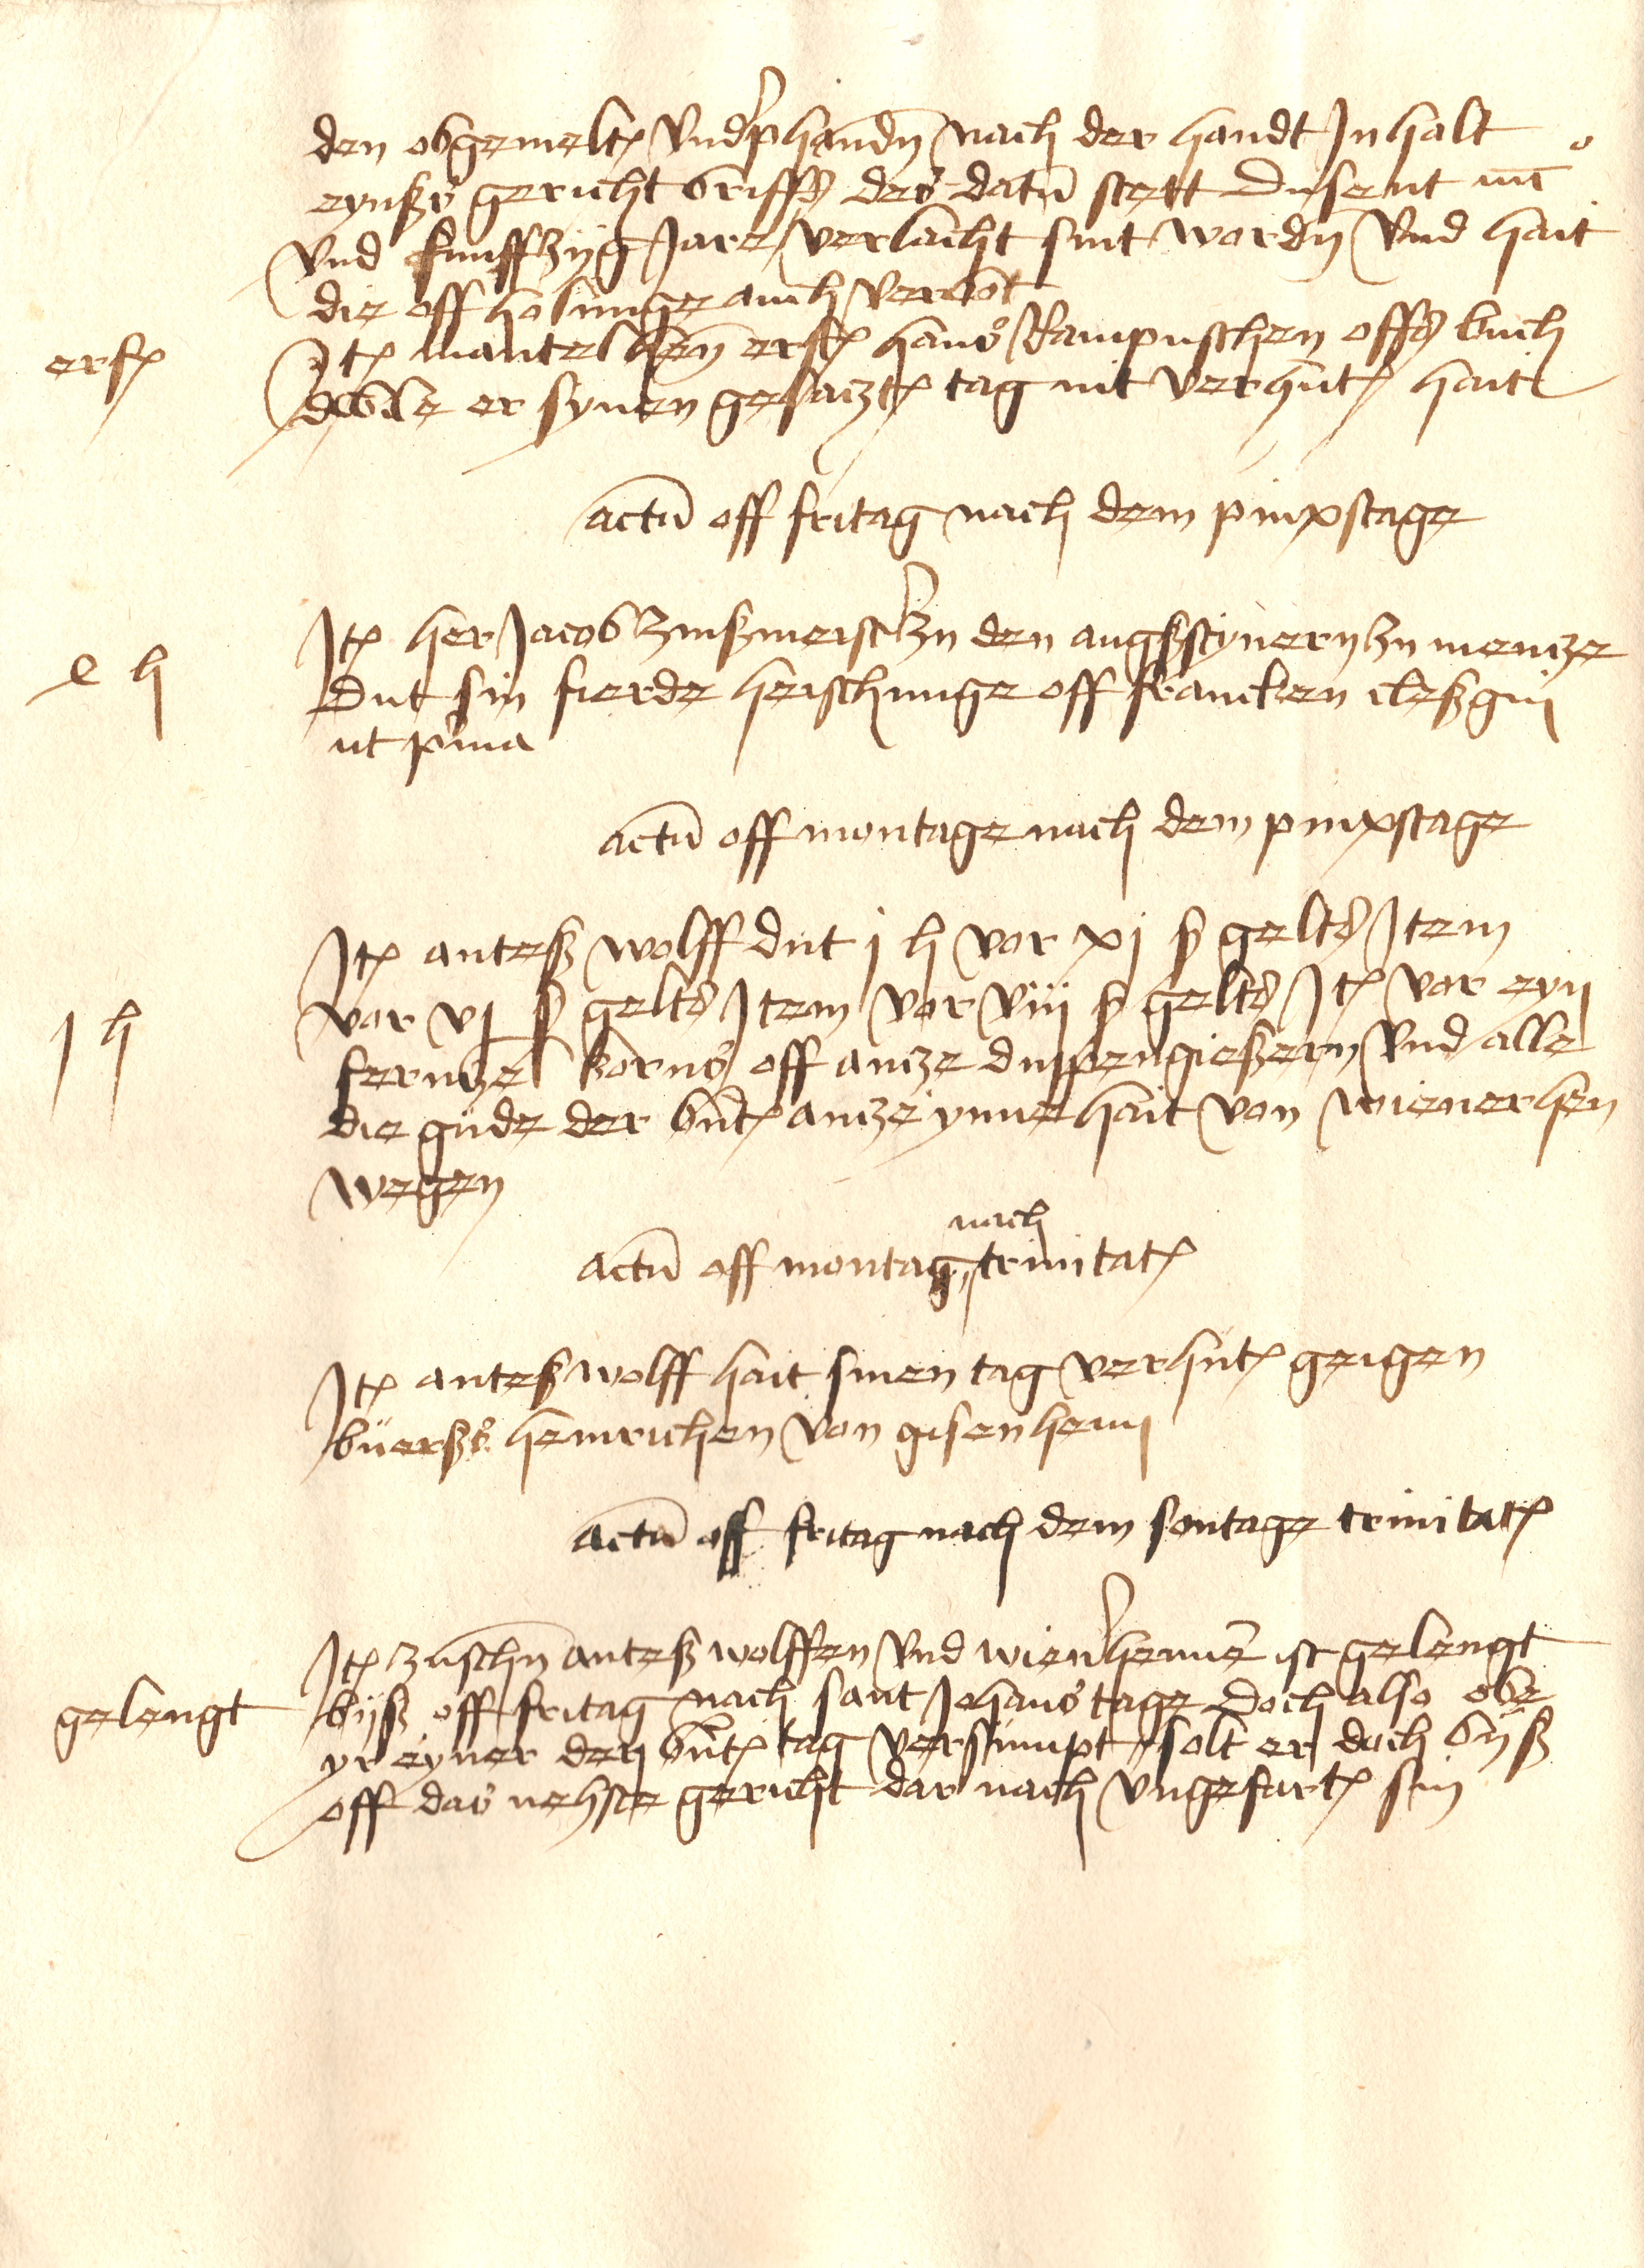 den obgemelt͛ Vnd'phandn̄ nach der handt Jnhalt
eynß gericht briffs des datū stett Dusent iiiiͦ
Vnd funffzijg Jare verlacht sint wordn̄ Vnd hait
die offholunge auch verbot
erf͛
Jt͛ mantel hen̄ erf͛ hans Rampuschen offs buch
er synen gesaczt͛ tag nit verhut͛ hait
actū off fritag nach dem pinxstage
e h
Jt͛ her Jacob Zinßmeist' zu den augustynern zu mencze
Dut sin fierde heischunge off francken cleßgin
ut prima
actū off montage nach dem pinxstage
Jt͛ anteß wolff dut j h vor xj ß gelts Jtem
j h
vor vj ß gelts Jtem vor viij ß gelts Jt͛ vor eyn
fernczel korns off ancze duppengießern Vnd alle
die gude der bnt͛ ancze ynne hait von wienerhen
wegen
actū off montag nach trinitat͛
Jt͛ anteß wolff hait sinen tag verhut͛ geigen
büerß heinrichen von gisenheim
actū off fritag nach dem sontage trinitat͛
gelengt
Jt͛ zuschn̄ anteß wolffen Vnd wien'hennē ist gelengt
bijß off fritag nach sant Johans tage Doch also obe
yr eyner den bnt͛ tag versümpt solt er doch bijß
off das nehste gericht dar nach vngefart͛ sin